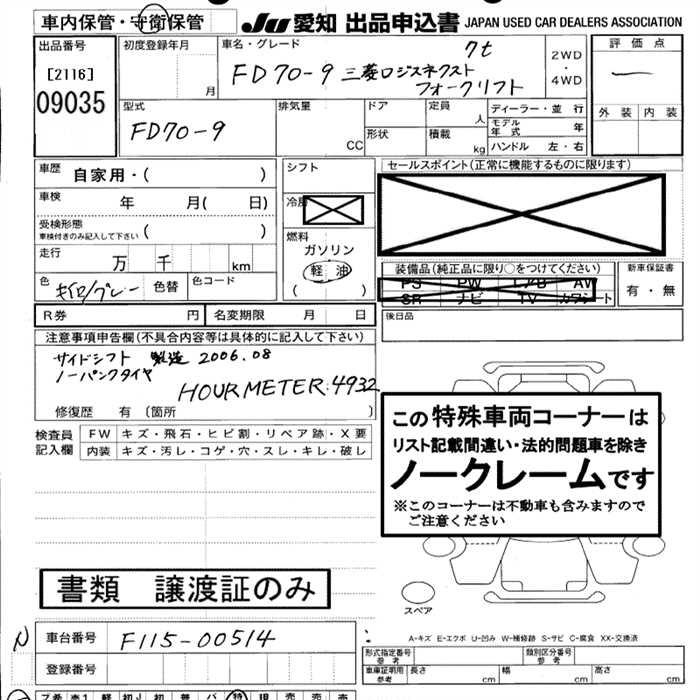 車内保管・守衛保管
JU 愛知 出品申込書 JAPAN USED CAR DEALERS ASSOCIATION
出品番号
[2116]
09035
初度登録年月
月
車名・グレード
7t
FD70-9 三菱ロジスネクスト
フォークリフト
2WD
・
4WD
評価点
外装 内装
型式
FD70-9
排気量
CC
ドア
形状
定員
人
積載
kg
ディーラー・並行
モデル年式 年
ハンドル 左・右
車歴
自家用・( )
車検 年 月( 日)
受検形態
車検付きのみ記入して下さい ( )
走行 万 千 km
色 キイロ/グレー 色替 色コード
シフト
冷房
燃料
ガソリン
軽油
( )
セールスポイント(正常に機能するものに限ります)
装備品(純正品に限り○をつけてください)
PS PW エアB AW
SR ナビ TV カワシート
新車保証書
有・無
R券 円 名変期限 月 日
後日品
注意事項申告欄(不具合内容等は具体的に記入して下さい)
サイドシフト 製造 2006.08
ノーパンクタイヤ
HOURMETER:4932
修復歴 有 〔箇所 〕
検査員記入欄
FW キズ・飛石・ヒビ割・リペア跡・X要
内装 キズ・汚レ・コゲ・穴・スレ・キレ・破レ
この特殊車両コーナーは
リスト記載間違い・法的問題車を除き
ノークレームです
※このコーナーは不動車も含みますので
ご注意ください
書類 譲渡証のみ
スペア
A-キズ E-エクボ U-凹み W-補修跡 S-サビ C-腐食 XX-交換済
N 車台番号 F115-00514
登録番号
形式指定番号 参考
類別区分番号 参考
車庫証明用 参考 長さ cm 幅 cm 高さ cm